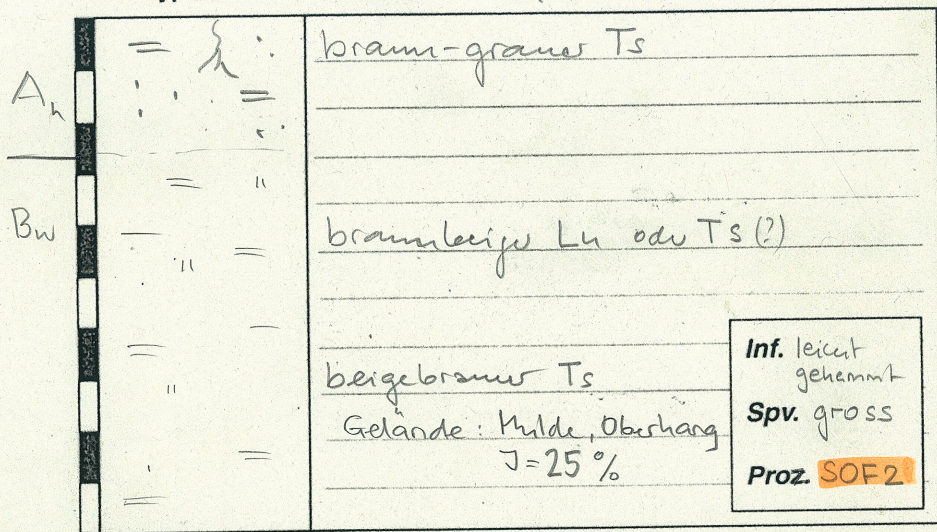 braun-grauer Ts
Ah
Bw
braunbeiger Lu oder Ts (?)
beigebrauner Ts
Gelände: Mulde, Oberhang
J = 25 %
Inf. leicht
gehemmt
Spv. gross
Proz. SOF2